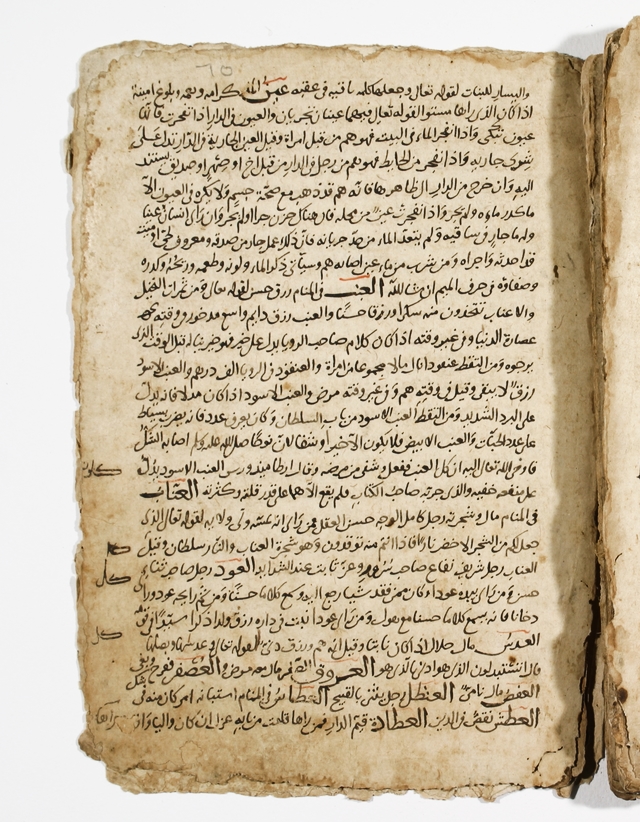 واليسار للبنات لقوله تعالى وجعلها كلمة باقية في عقبه عين الماء كرامة ونعمة وبلوغ امنية
اذا كان الذي راها مستور لقوله تعالى فيهما عينان تجريان والعيون في الدار اذا تفجرت فانها
عيون تبكي واذا انفجر الماء في البيت فهو هم من قبل امراة وقيل العين الجارية في الدار تدل على
شرى جارية واذا انفجر من الحايط فهو هم من رجل في الدار من قبل اخ او صهر او صديق يستند
اليه وان خرج من الدار الى ظاهرها فانه هم قد ذهب مع صحة جسم ولا يكره في العيون الا
ما كدر ماوه ولم يجر واذا انفجرت عين من محله فان هناك حزن جرا او لم يجر وان راى انسان عينا
وله ما جار في ساقية ولم يتعد الماء من حد جريانه فان ذلك عمل جار من صدقة ومعروف لحي او ميت
قد احدثه واجراه ومن شرب من ماء عين اصابه هم وسياتي ذكر الماء ولونه وطعمه وريحه وكدره
وصفاوه في حرف الميم ان شا الله العنب في المنام رزق حسن لقوله تعالى ومن ثمرات النخيل
والاعناب تتخذون منه سكرا ورزقا حسنا والعنب رزق دايم واسع مدخور ووقته
عصارة الدنيا وفي غير وقته اذا كان كلام صاحب الرويا يدل على خير فهو خير يناله قبل الوقت الذي
يرجوه ومن التقط عنقودا نال مالا مجموعا من امراة والعنقود في الرويا الف درهم والعنب الاسود
رزق لا يبقى وقيل في وقته هم وفي غير وقته مرض والعنب الاسود اذا كان مدلا فانه يدل
على البرد الشديد ومن التقط العنب الاسود من باب السلطان وكان يعرف عدده فانه يضرب سياط
على عدد الحبات والعنب الابيض فلا يكون الا خيرا وشفا لان نوحا صلى الله عليه وسلم اصابه السل
فاوحى الله تعالى اليه ان كل العنب ففعل وشفي من مرضه وقال ارطاميدورس العنب الاسود يدل
على منفعة خفية والذي جربه صاحب الكتاب فلم يقع الا هما على قدر قلته وكثرته العناب
في المنام مال وشجرته رجل كامل الوجه حسن العقل فمن راى انه يمسه ولي ولاية لقوله تعالى الذي
جعل لكم من الشجر الاخضر نارا فاذا انتم منه توقدون وهو شجرة العناب والنار سلطان وقيل
العناب رجل شريف نفاع صاحب سرور وعز ثابت عند الشدايد العود رجل صاحب ثنا
حسن ومن راى بيده عودا وكان ممن فقد شيا رجع اليه ويسمع كلاما حسنا ومن شم رايحة عود وراى
دخانا فانه يسمع كلاما حسنا مع هول ومن راى عودا نبت في داره رزق ولدا ذكرا
العدس مال حلال اذا كان نابتا وقيل انه هم ورزق دني لقوله تعالى وعدسها وبصلها
قال اتستبدلون الذي هو ادنى بالذي هو خير العروق الصفر مال معه مرض والعصفر فرح
العفص مال نامي العنظل رجل يفتن بالقبيح العطاس في المنام استبانة امر كان منه في
العطش نقص في الدين العطادة قيم الدار فمن راها قلعت من بابه عزل ان كان واليا واذا راها